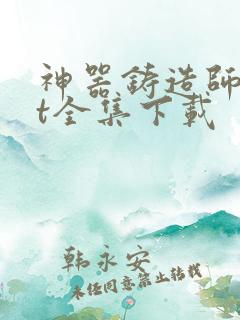 神器鋳造師
t全集下載
韩永安
未经同意禁止转载